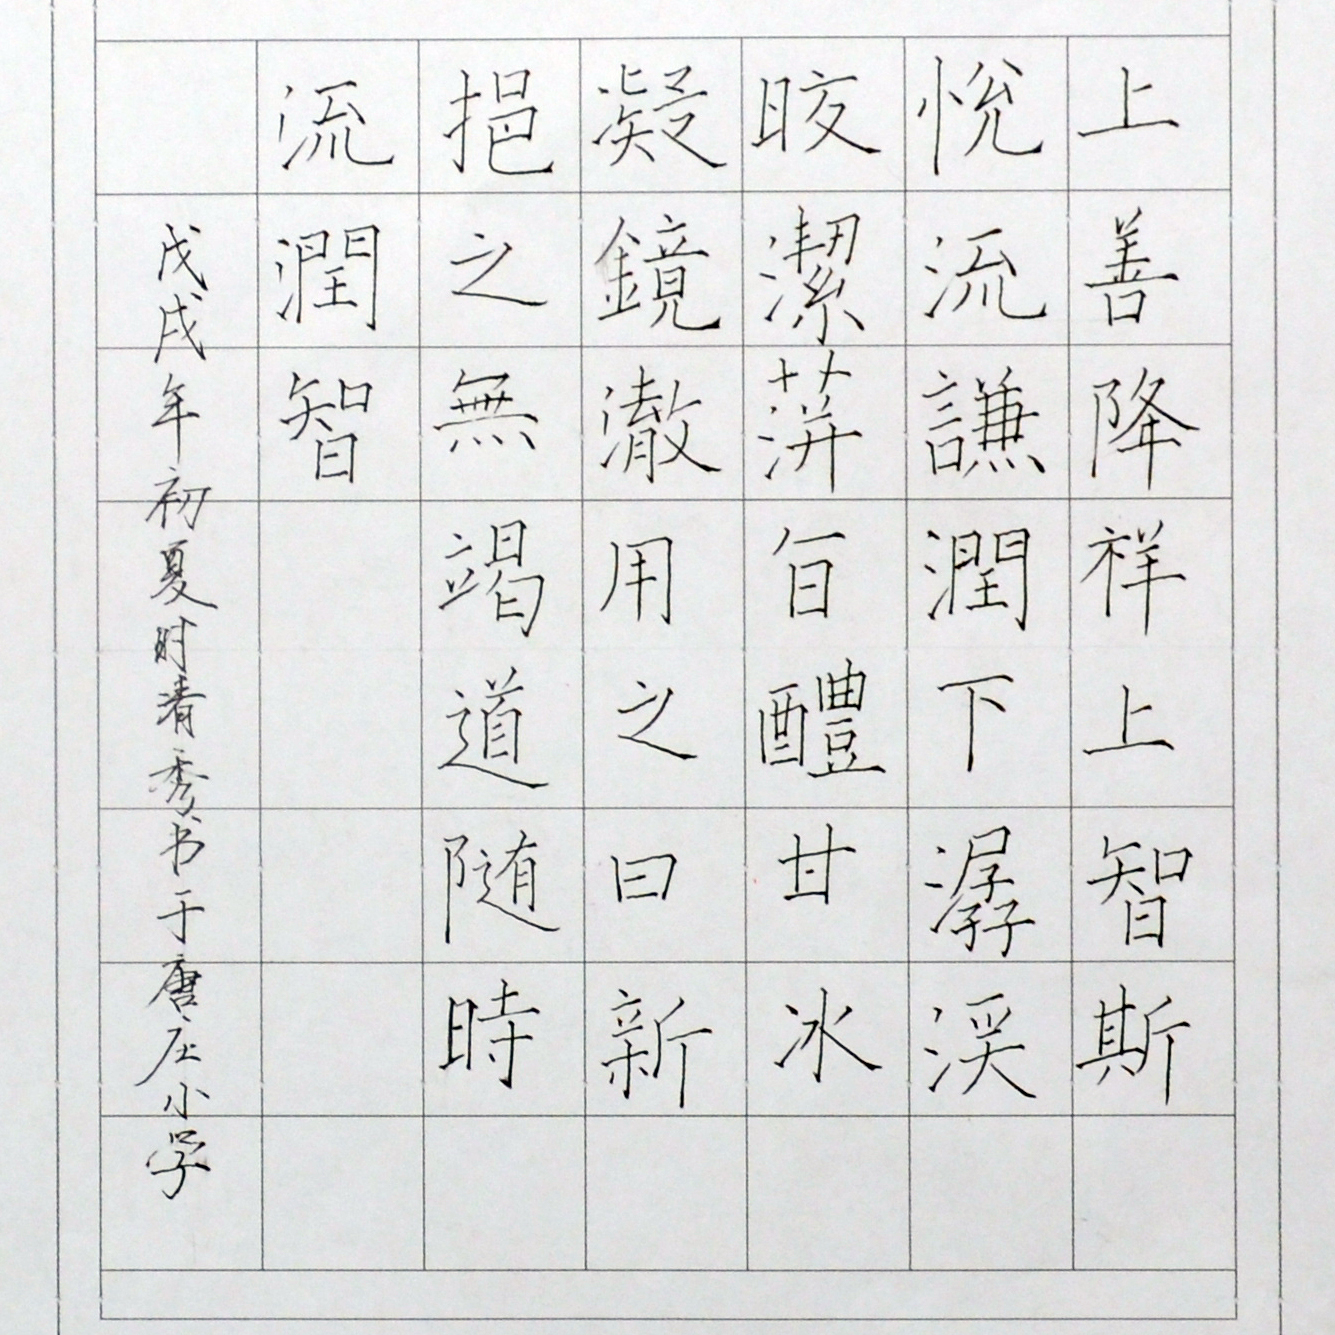 上善降祥上智斯
悅流謙潤下潺湲
晈潔萍旨醴甘冰
凝鏡澈用之日新
挹之無竭道随時
流潤智
戊戌年初夏时清秀书于唐庄小学